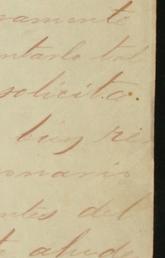 ramente
ntarlo tal
solicita.
bien re
onario
ntes del
alude